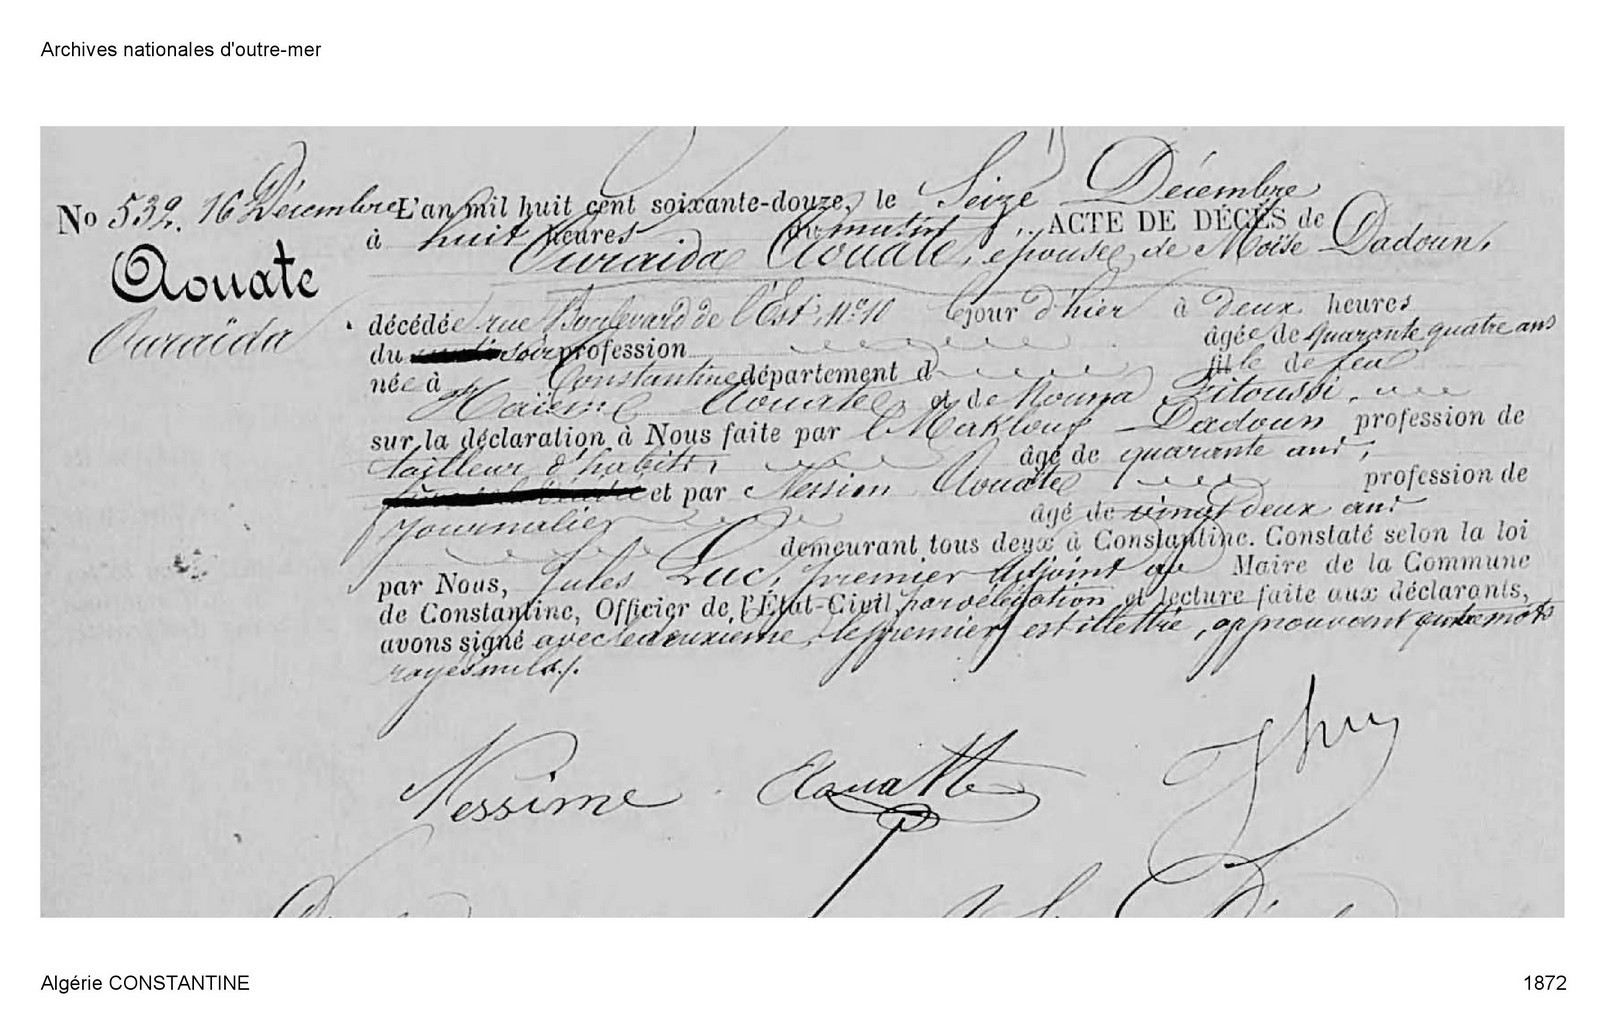 Archives nationales d'outre-mer
No 532. 16 Décembre L'an mil huit cent soixante-douze, le Seize Décembre
à huit heures du matin, ACTE DE DÉCÈS de
Aouate
Ouraïda
Ouraïda Aouate, épouse de Moïse Dadoun,
décédée rue Boulevard de l'Est, No 10 le jour d'hier à deux heures
du soir profession âgée de quarante quatre ans
née à Constantine département d fille de feu
Haïem Aouate et de Nouna Zitoussi,
sur la déclaration à Nous faite par Maklouf Dadoun profession de
tailleur d'habits, âgé de quarante ans,
et par Nession Aouate profession de
journalier âgé de vingt deux ans
demeurant tous deux à Constantine. Constaté selon la loi
par Nous, Jules Luc, premier Adjoint au Maire de la Commune
de Constantine, Officier de l'État-Civil par délégation et lecture faite aux déclarants,
avons signé avec le deuxième, le premier est illettré, approuvant quatre mots
rayés nuls.
Nessime Aouatte
Algérie CONSTANTINE
1872